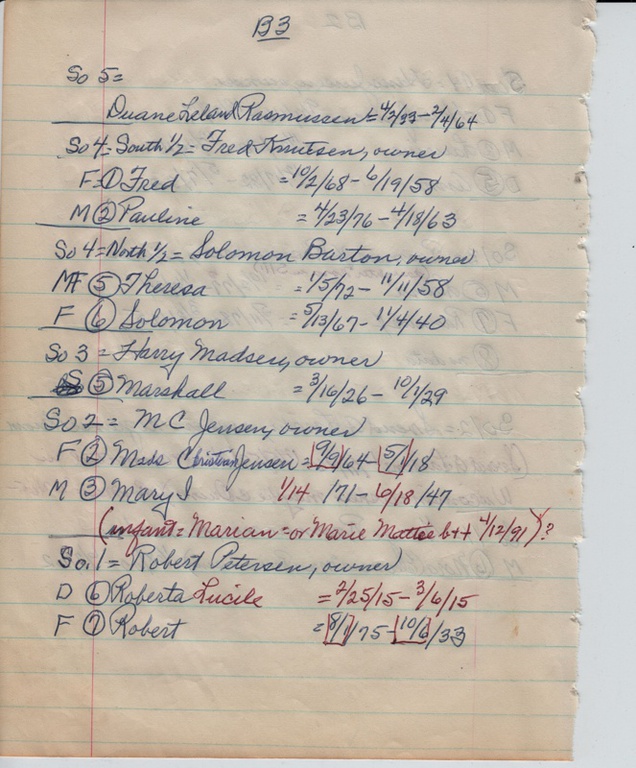 B3
So 5=
Duane Leland Rasmussen = 4/2/33 - 2/4/64
So 4 = South 1/2 = Fred Knutsen, owner
F = ① Fred = 10/2/68 - 6/19/58
M ② Pauline = 4/23/76 - 4/18/63
So 4 = North 1/2 = Solomon Barton, owner
MF ⑤ Theresa = 1/5/72 - 11/11/58
F ⑥ Solomon = 5/13/67 - 11/4/40
So 3 = Harry Madsen, owner
⑤ Marshall = 3/16/26 - 10/1/29
So 2 = M C Jensen, owner
F ② Mads Christian Jensen = 9/9/64 - 5/1/18
M ③ Mary I 1/14/71 - 6/18/47
(infant = Marian = or Marie Mattie b++ 4/12/91)?
So. 1 = Robert Petersen, owner
D ⑥ Roberta Lucile = 2/25/15 - 3/6/15
F ⑦ Robert = 8/1/75 - 10/6/33